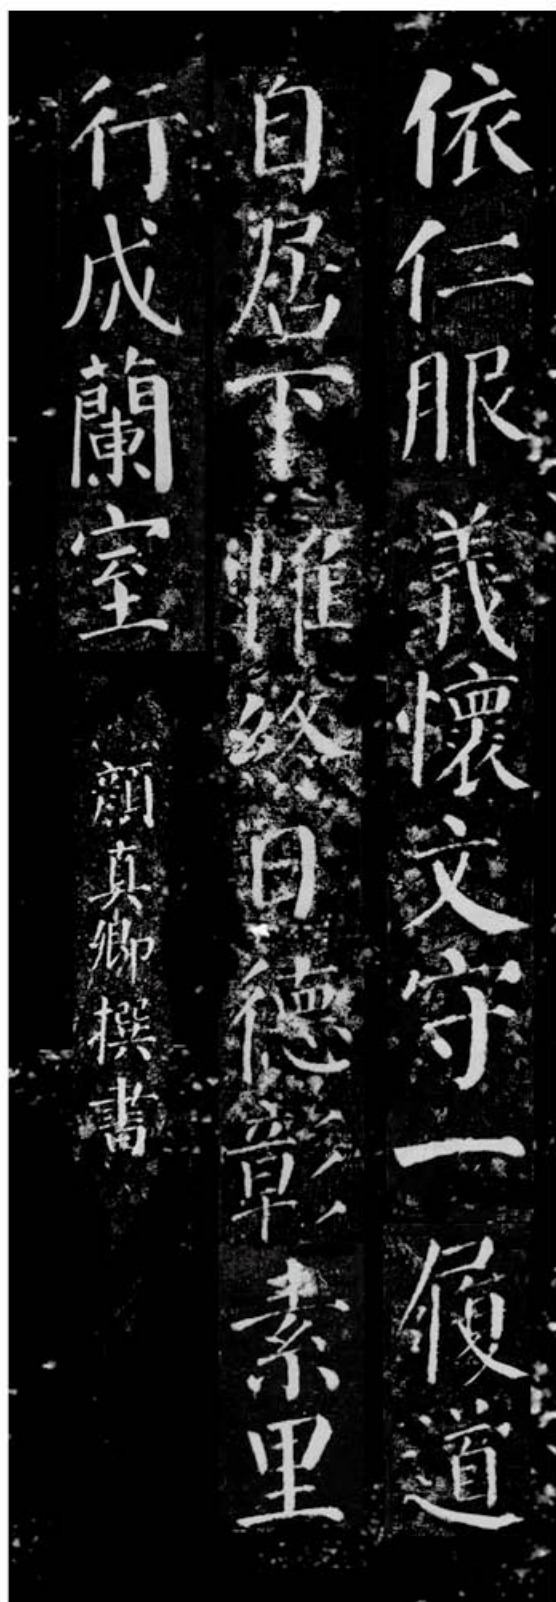 依仁服義懷文守一履道
自居下帷終日德彰素里
行成蘭室
顔真卿撰書